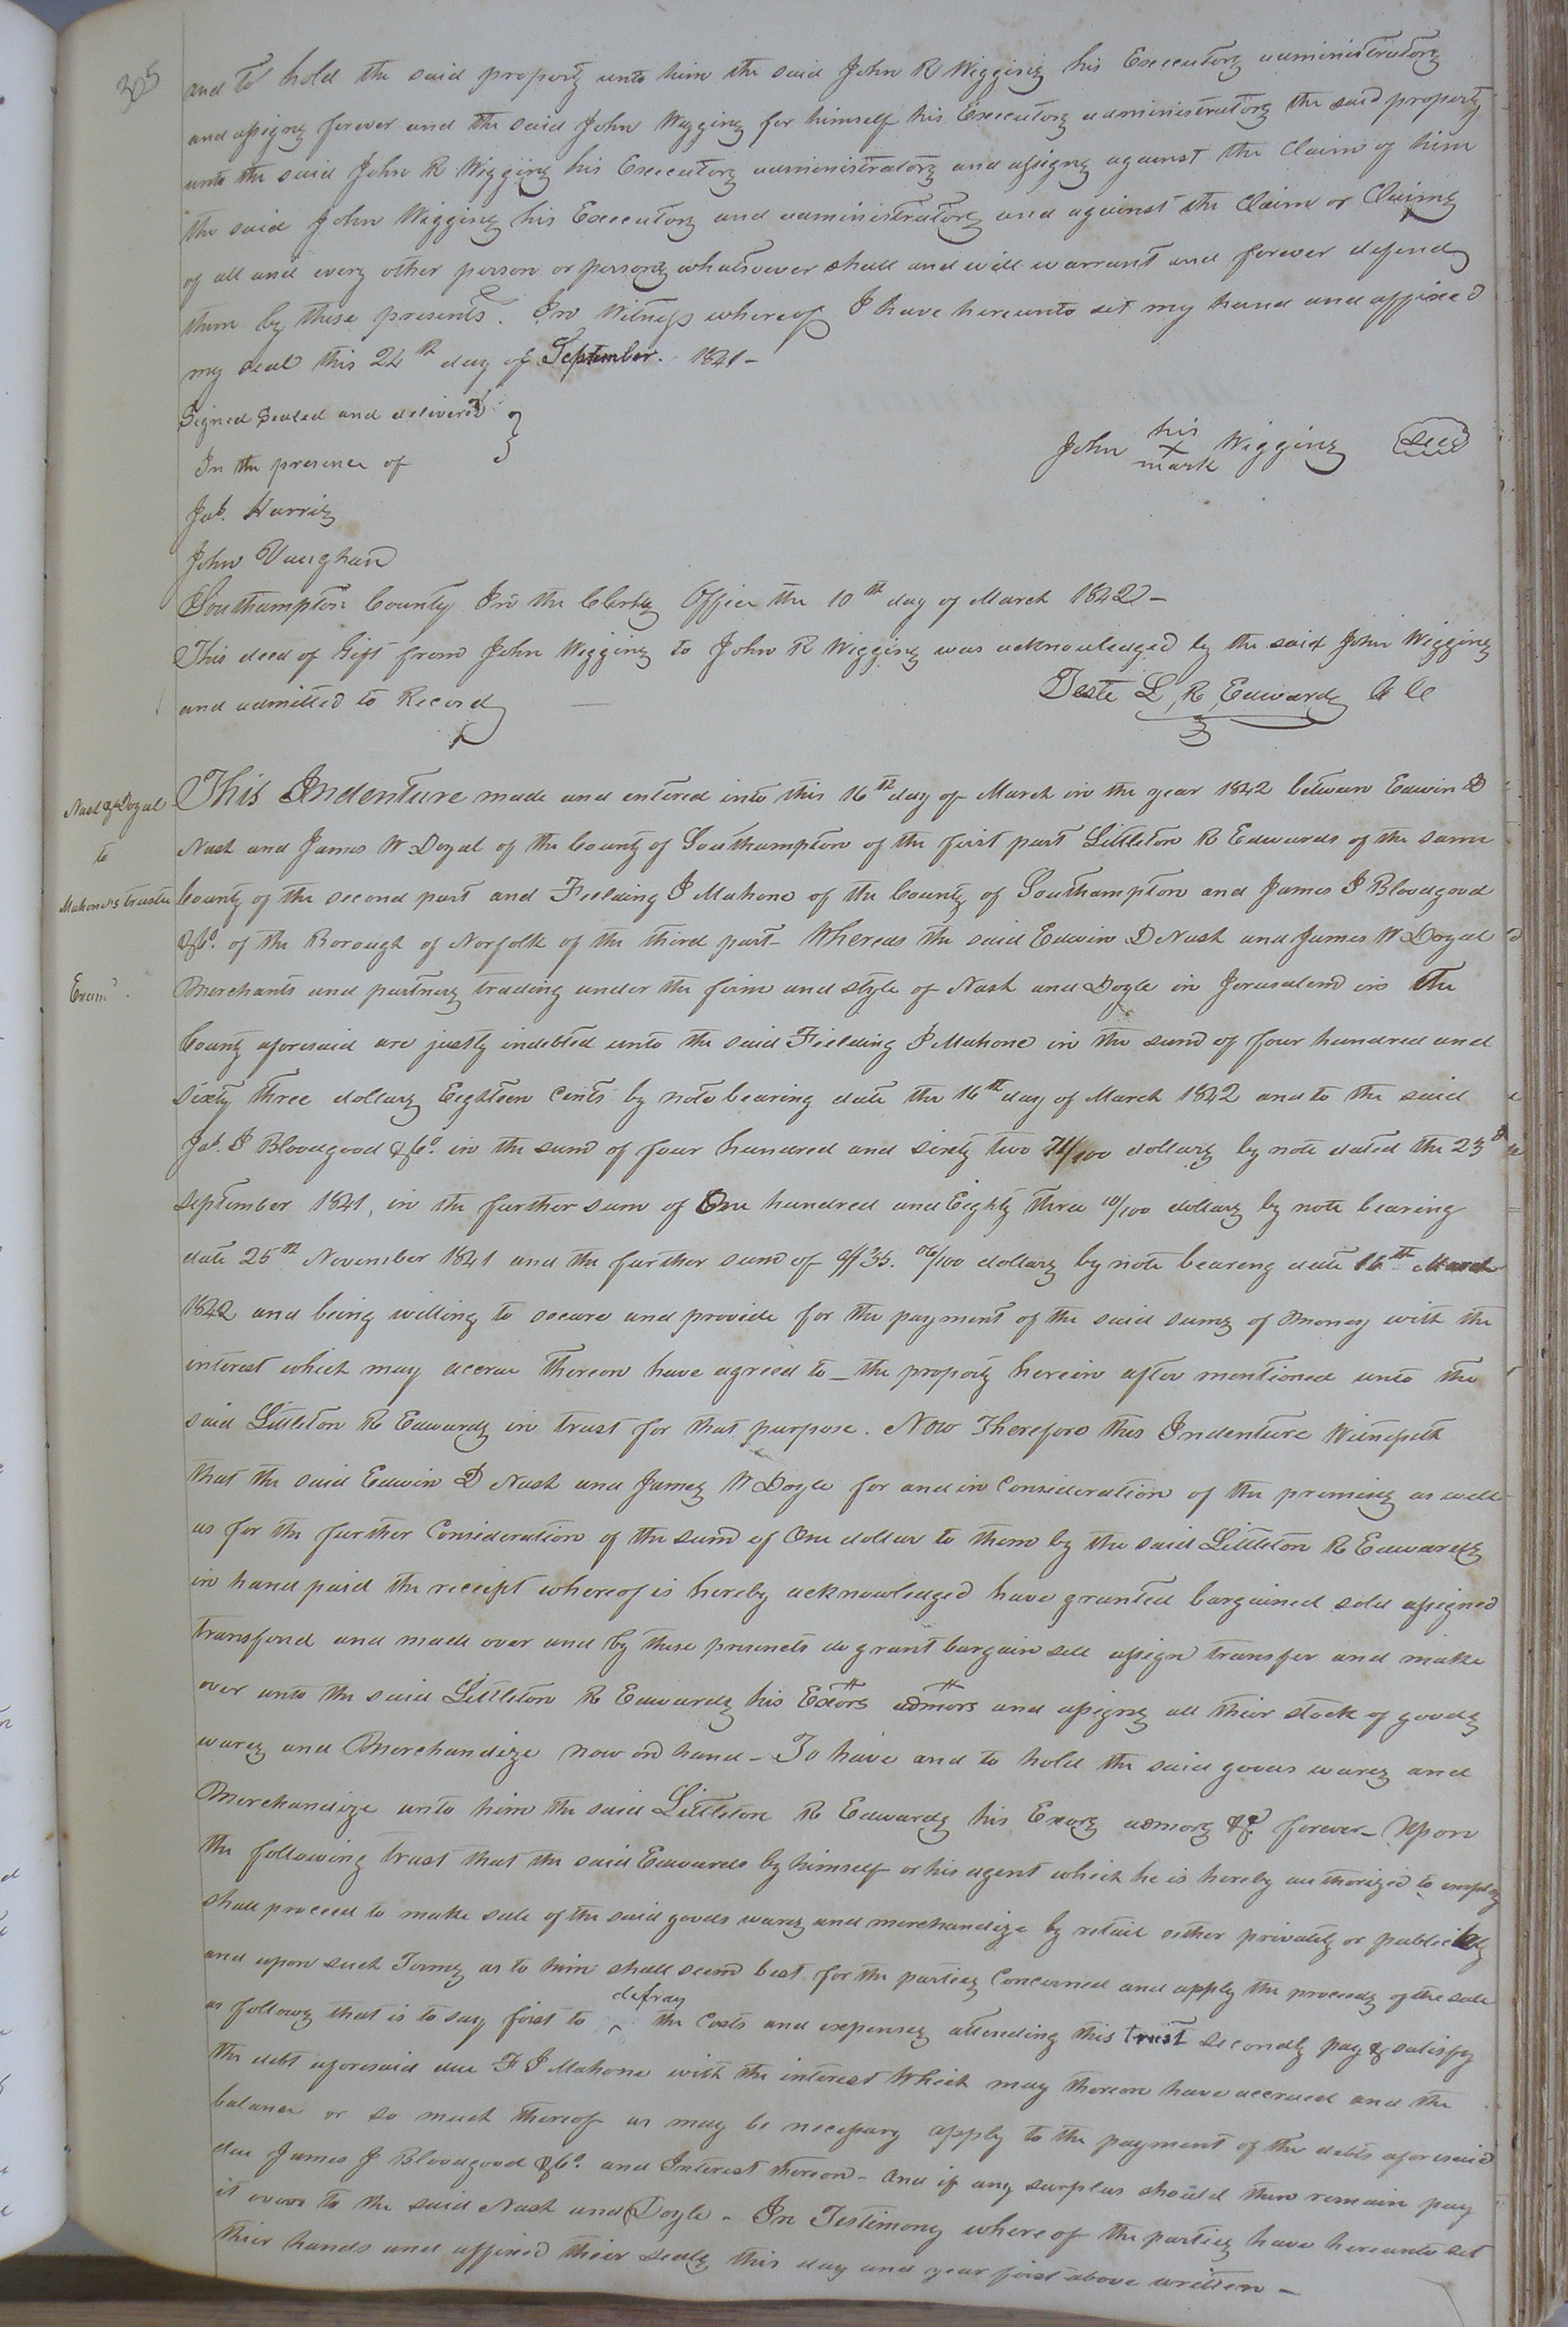 305
and to hold the said property unto him the said John R Wiggins his Executors administrators
and assigns forever and the said John Wiggins for himself his Executors administrators the said property
unto the said John R Wiggins his Executors administrators and assigns against the Claim of him
the said John Wiggins his Executors and administrators and against the Claim or Claims
of all and every other person or persons whatsoever shall and will warrant and forever defend
them by these presents. In Witness whereof I have hereunto set my hand and affixed
my seal this 24th day of September. 1841–
Signed Sealed and delivered }
In the presence of
John his X mark Wiggins seal
Jas. Harris
John Vaughan
Southampton County In the Clerks Office the 10th day of March 1842–
This deed of Gift from John Wiggins to John R Wiggins was acknowledged by the said John Wiggins
and admitted to Record
Teste L, R, Edwards C C
Nash & Doyal
to
Mahone's trustee
Exam'd.
This Indenture made and entered into this 16th day of March in the year 1842 between Edwin D
Nash and James W Doyal of the County of Southampton of the first part Littleton R Edwards of the same
County of the second part and Fielding J Mahone of the County of Southampton and James J Bloodgood
& Co. of the Borough of Norfolk of the third part– Whereas the said Edwin D Nash and James W Doyal
Merchants and partners trading under the firm and style of Nash and Doyle in Jerusalem in the
County aforesaid are justly indebted unto the said Fielding J Mahone in the sum of four hundred and
sixty three dollars Eighteen Cents by note bearing date the 16th day of March 1842 and to the said
Jas. J Bloodgood & Co. in the sum of four hundred and sixty two 71/100 dollars by note dated the 23d
September 1841, in the further sum of One hundred and Eighty three 10/100 dollars by note bearing
date 25th November 1841 and the further sum of $35. 06/100 dollars by note bearing date 16th March
1842 and being willing to secure and provide for the payment of the said sums of money with the
interest which may accrue thereon have agreed to – the property herein after mentioned unto the
said Littleton R Edwards in trust for that purpose. Now Therefore this Indenture Witnesseth
that the said Edwin D Nash and James W Doyle for and in Consideration of the premises as well
as for the further Consideration of the sum of One dollar to them by the said Littleton R Edwards
in hand paid the receipt whereof is hereby acknowledged have granted bargained sold assigned
transfered and made over and by these presents do grant bargain sell assign transfer and make
over unto the said Littleton R Edwards his Exors admors and assigns all their stock of goods
wares and Merchandize now on hand – To have and to hold the said goods wares and
Merchandize unto him the said Littleton R Edwards his Exors admors &c. forever – Upon
the following trust that the said Edwards by himself or his agent which he is hereby authorized to employ
shall proceed to make sale of the said goods wares and merchandize by retail either privately or publickly
and upon such Terms as to him shall seem best for the parties Concerned and apply the proceeds of the sale
as follows that is to say first to ^ defray the Costs and expenses attending this trust secondly pay & satisfy
the debt aforesaid due F J Mahone with the interest Which may thereon have accrued and the
balance or so much thereof as may be necessary apply to the payment of the debts aforesaid
due James J Bloodgood & Co. and Interest thereon – And if any surplus should then remain pay
it over to the said Nash and Doyle – In Testimony where of the parties have hereunto set
their hands and affixed their seals this day and year first above written –